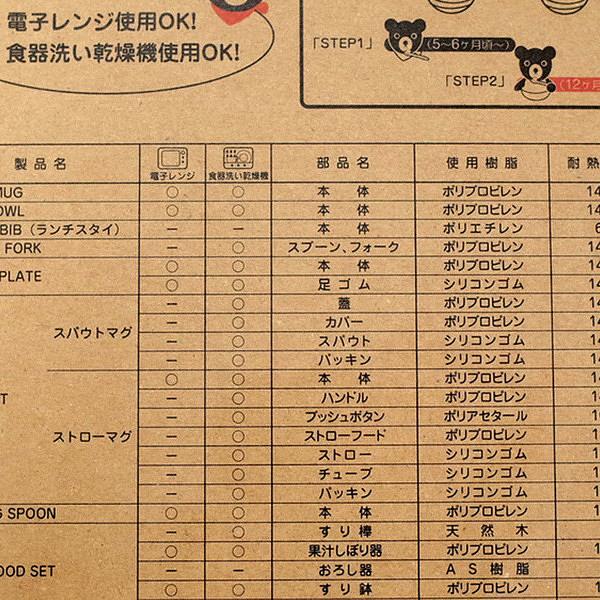 電子レンジ使用OK!
食器洗い乾燥機使用OK!
「STEP1」 (5〜6ヶ月頃〜)
「STEP2」 (12ヶ月
製品名 電子レンジ 食器洗い乾燥機 部品名 使用樹脂 耐熱
MUG ○ ○ 本体 ポリプロピレン 14
OWL ○ ○ 本体 ポリプロピレン 14
BIB（ランチスタイ） － － 本体 ポリエチレン 6
FORK － ○ スプーン、フォーク ポリプロピレン 14
PLATE ○ ○ 本体 ポリプロピレン 14
○ ○ 足ゴム シリコンゴム 14
スパウトマグ － ○ 蓋 ポリプロピレン 14
－ ○ カバー ポリプロピレン 14
－ ○ スパウト シリコンゴム 14
－ ○ パッキン シリコンゴム 14
T ストローマグ ○ ○ 本体 ポリプロピレン 14
－ ○ ハンドル ポリプロピレン 14
－ ○ プッシュボタン ポリアセタール 1
－ ○ ストローフード ポリプロピレン 1
－ ○ ストロー シリコンゴム 1
－ ○ チューブ シリコンゴム 1
－ ○ パッキン シリコンゴム 1
G SPOON ○ ○ 本体 ポリプロピレン 1
OOD SET － ○ すり棒 天然木
○ ○ 果汁しぼり器 ポリプロピレン 1
－ － おろし器 AS樹脂
○ ○ すり鉢 ポリプロピレン 1